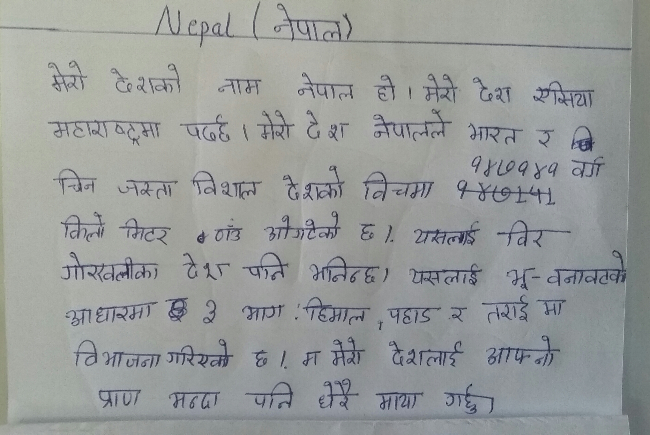 Nepal (नेपाल)
मेरो देशको नाम नेपाल हो। मेरो देश एसिया
महाराष्ट्रमा पर्दछ। मेरो देश नेपालले भारत र
१४७१४१ वर्ग
चिन जस्ता विशाल देशको विचमा
किलो मिटर ठाँउ ओगटेको छ।. यसलाई विर
गोरखलीका देश पनि भनिन्छ। यसलाई भू-वनावटको
आधारमा ३ भाग : हिमाल, पहाड र तराई मा
विभाजना गरिएको छ।. म मेरो देशलाई आफ्नो
प्राण भन्दा पनि धेरै माया गर्छु।